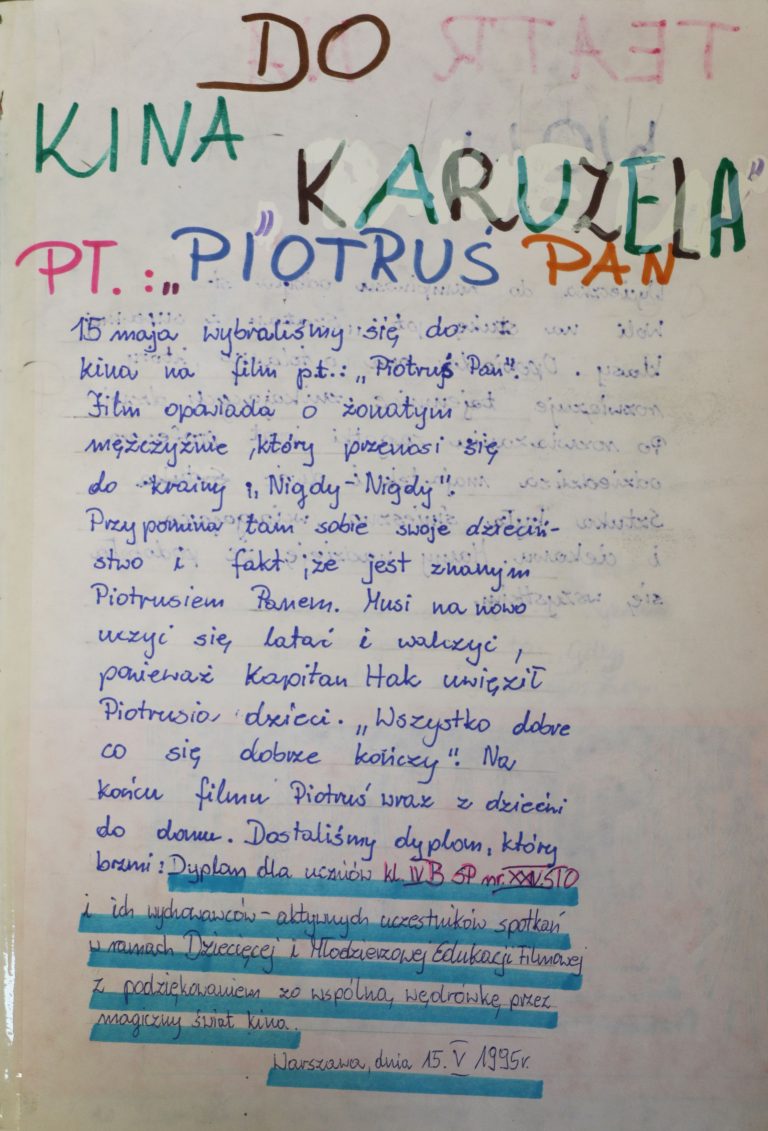 DO
KINA
KARUZELA"
PT.: „PIOTRUŚ PAN
15 maja wybraliśmy się do
kina na film p.t.: „Piotruś Pan".
Film opowiada o żonatym
mężczyźnie, który przenosi się
do krainy „Nigdy-Nigdy".
Przypomina tam sobie swoje dzieciń-
stwo i fakt, że jest znanym
Piotrusiem Panem. Musi na nowo
uczyć się latać i walczyć,
ponieważ Kapitan Hak uwięził
Piotrusia dzieci. „Wszystko dobre
co się dobrze kończy". Na
końcu filmu Piotruś wraz z dziećmi
do domu. Dostaliśmy dyplom, który
brzmi: Dyplom dla uczniów kl. IVB SP nr STO
i ich wychowawców - aktywnych uczestników spotkań
w ramach Dziecięcej i Młodzierzowej Edukacji Filmowej
z podziękowaniem za wspólną wędrówkę przez
magiczny świat kina.
Warszawa, dnia 15. V 1995r.